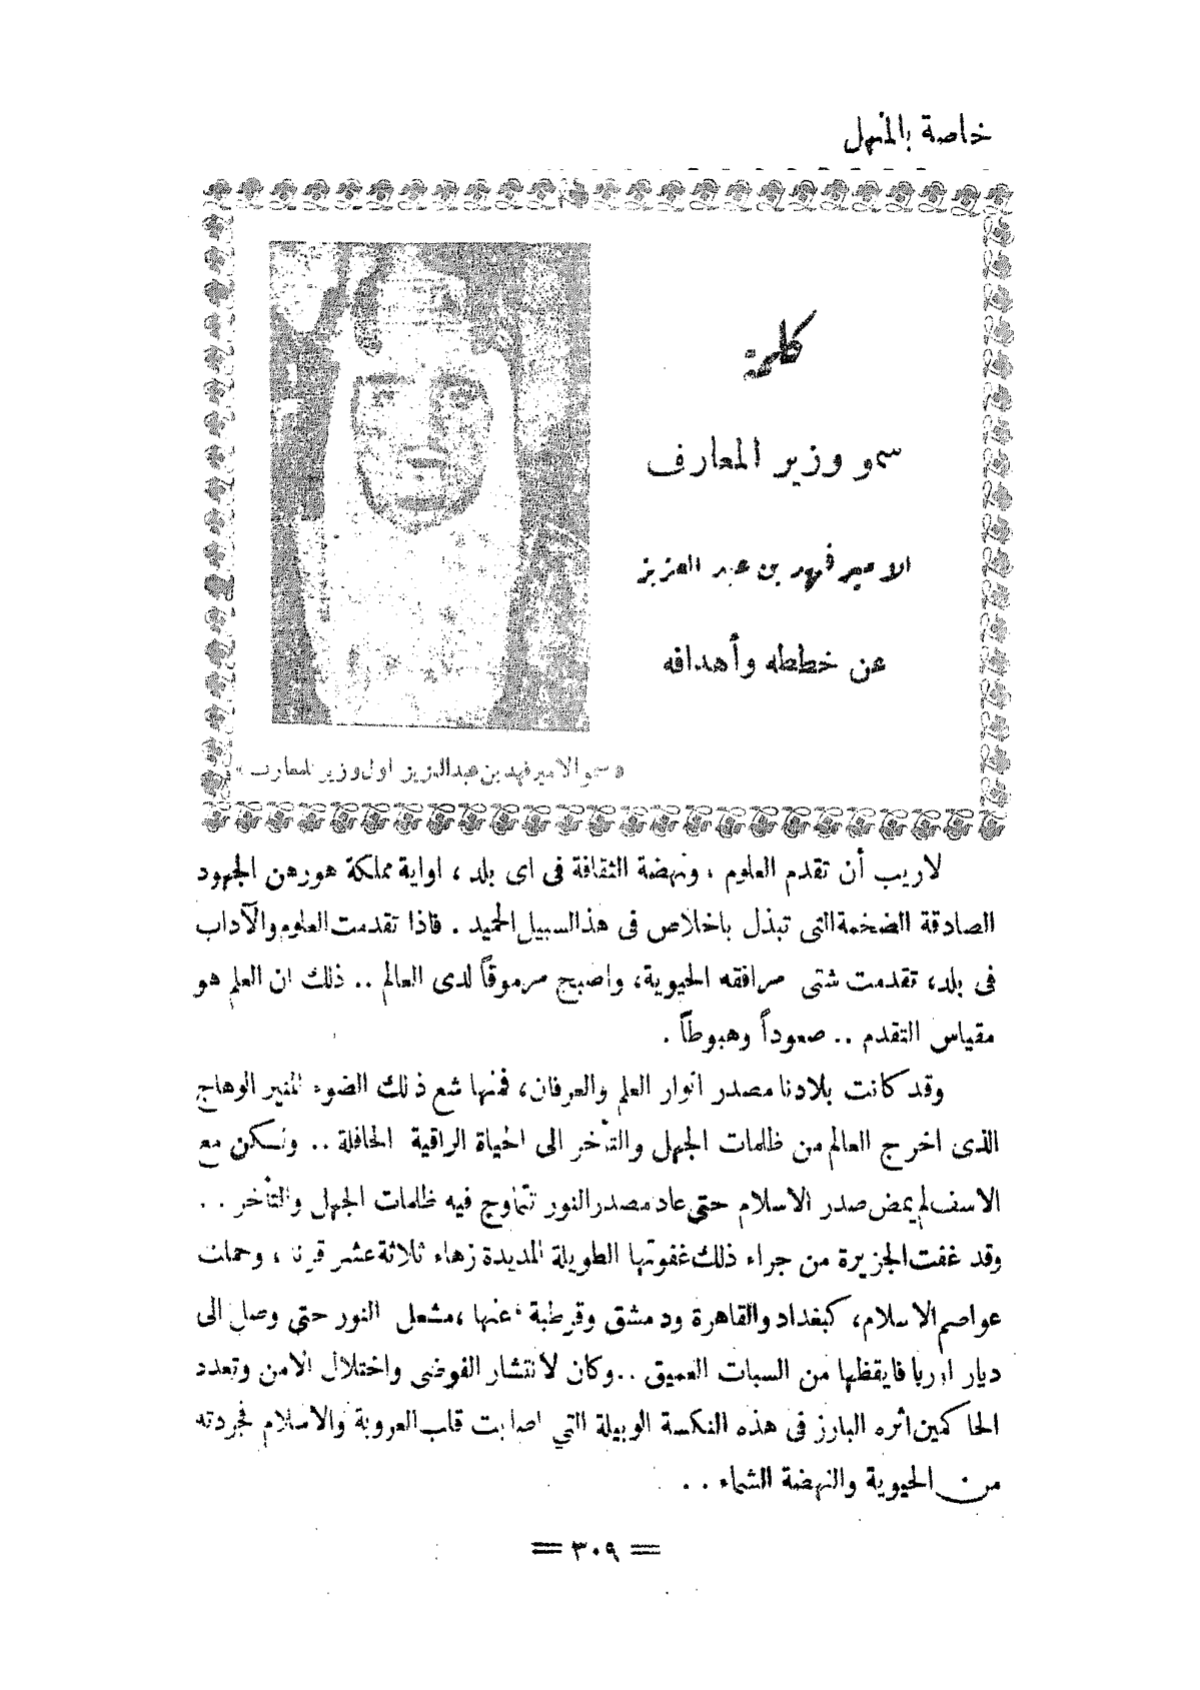 خاصة بالمنهل
كلمة
سمو وزير المعارف
الامير فهد بن عبد العزيز
عن خططه وأهدافه
«سمو الامير فهد بن عبد العزيز اول وزير للمعارف»
لاريب أن تقدم العلوم ، ونهضة الثقافة فى اى بلد ، اواية مملكة هورهن الجهود
الصادقة الضخمة التى تبذل باخلاص فى هذا السبيل الحميد . فاذا تقدمت العلوم والآداب
فى بلد، تقدمت شتى مرافقه الحيوية، واصبح مرموقاً لدى العالم .. ذلك ان العلم هو
مقياس التقدم .. صعوداً وهبوطاً .
وقد كانت بلادنا مصدر انوار العلم والعرفان، فمنها شع ذلك الضوء المنير الوهاج
الذى اخرج العالم من ظلمات الجهل والتأخر الى الحياة الراقية الحافلة .. ولكن مع
الاسف لم يمض صدر الاسلام حتى عاد مصدر النور تتماوج فيه ظلمات الجهل والتأخر ..
وقد غفت الجزيرة من جراء ذلك غفوتها الطويلة المديدة زهاء ثلاثة عشر قرنا ، وحملت
عواصم الاسلام، كبغداد والقاهرة ودمشق وقرطبة عنها ،مشعل النور حتى وصل الى
ديار اوربا فايقظها من السبات العميق ..وكان لانتشار الفوضى واختلال الامن وتعدد
الحاكمين اثره البارز فى هذه النكسة الوبيلة التي اصابت قلب العروبة والاسلام فجردته
من الحيوية والنهضة الشماء ..
= ٣٠٩ =